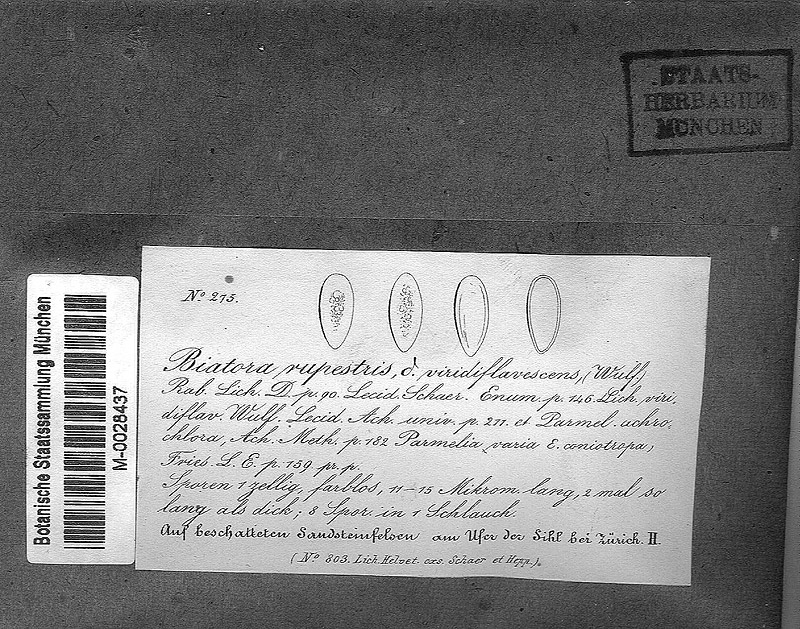 STAATS-
HERBARIUM
MÜNCHEN
Botanische Staatssammlung München
M-0028437
No. 275.
Biatora rupestris, δ. viridiflavescens, (Wulf.)
Rab. Lich. D. p. 90. Lecid. Schaer. Enum. p. 146. Lich. viri-
diflav. Wulf. Lecid. Ach. univ. p. 211. et Parmel. ochro-
chlora, Ach. Meth. p. 182 Parmelia varia ε. coniotropa,
Fries. L. E. p. 159 pr. p.
Sporen 1 zellig, farblos, 11–15 Mikrom. lang, 2 mal so
lang als dick; 8 Spor. in 1 Schlauch.
Auf beschatteten Sandsteinfelsen am Ufer der Sihl bei Zürich. H.
(No. 803. Lich. Helvet. exs. Schaer et Hepp.).